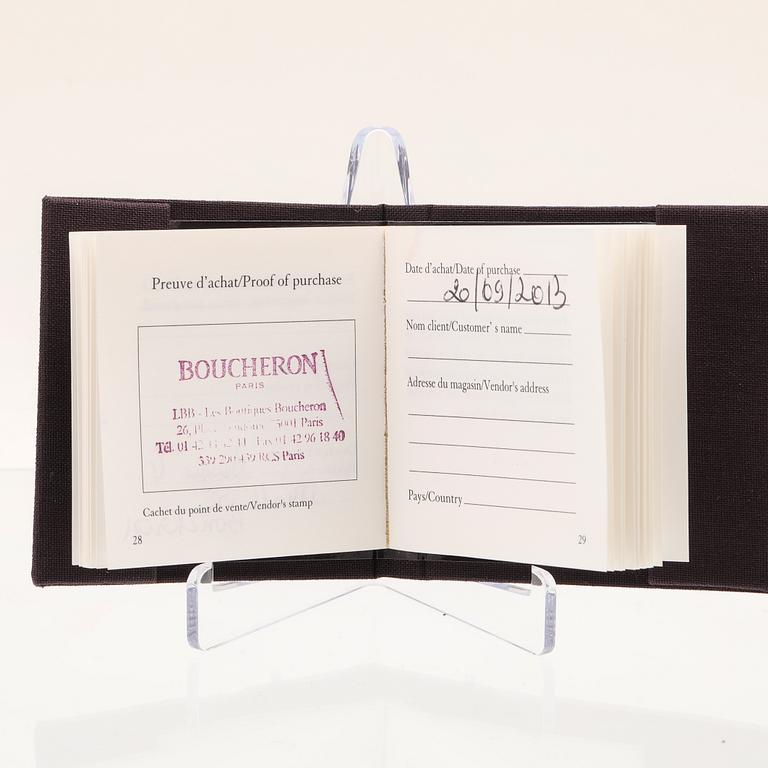 Preuve d'achat/Proof of purchase
BOUCHERON
PARIS
LBB - Les Boutiques Boucheron
26, Paris
Tél. 01 42 96 18 40
RCS Paris
Cachet du point de vente/Vendor's stamp
28
Date d'achat/Date of purchase
20/09/2013
Nom client/Customer' s name
Adresse du magasin/Vendor's address
Pays/Country
29